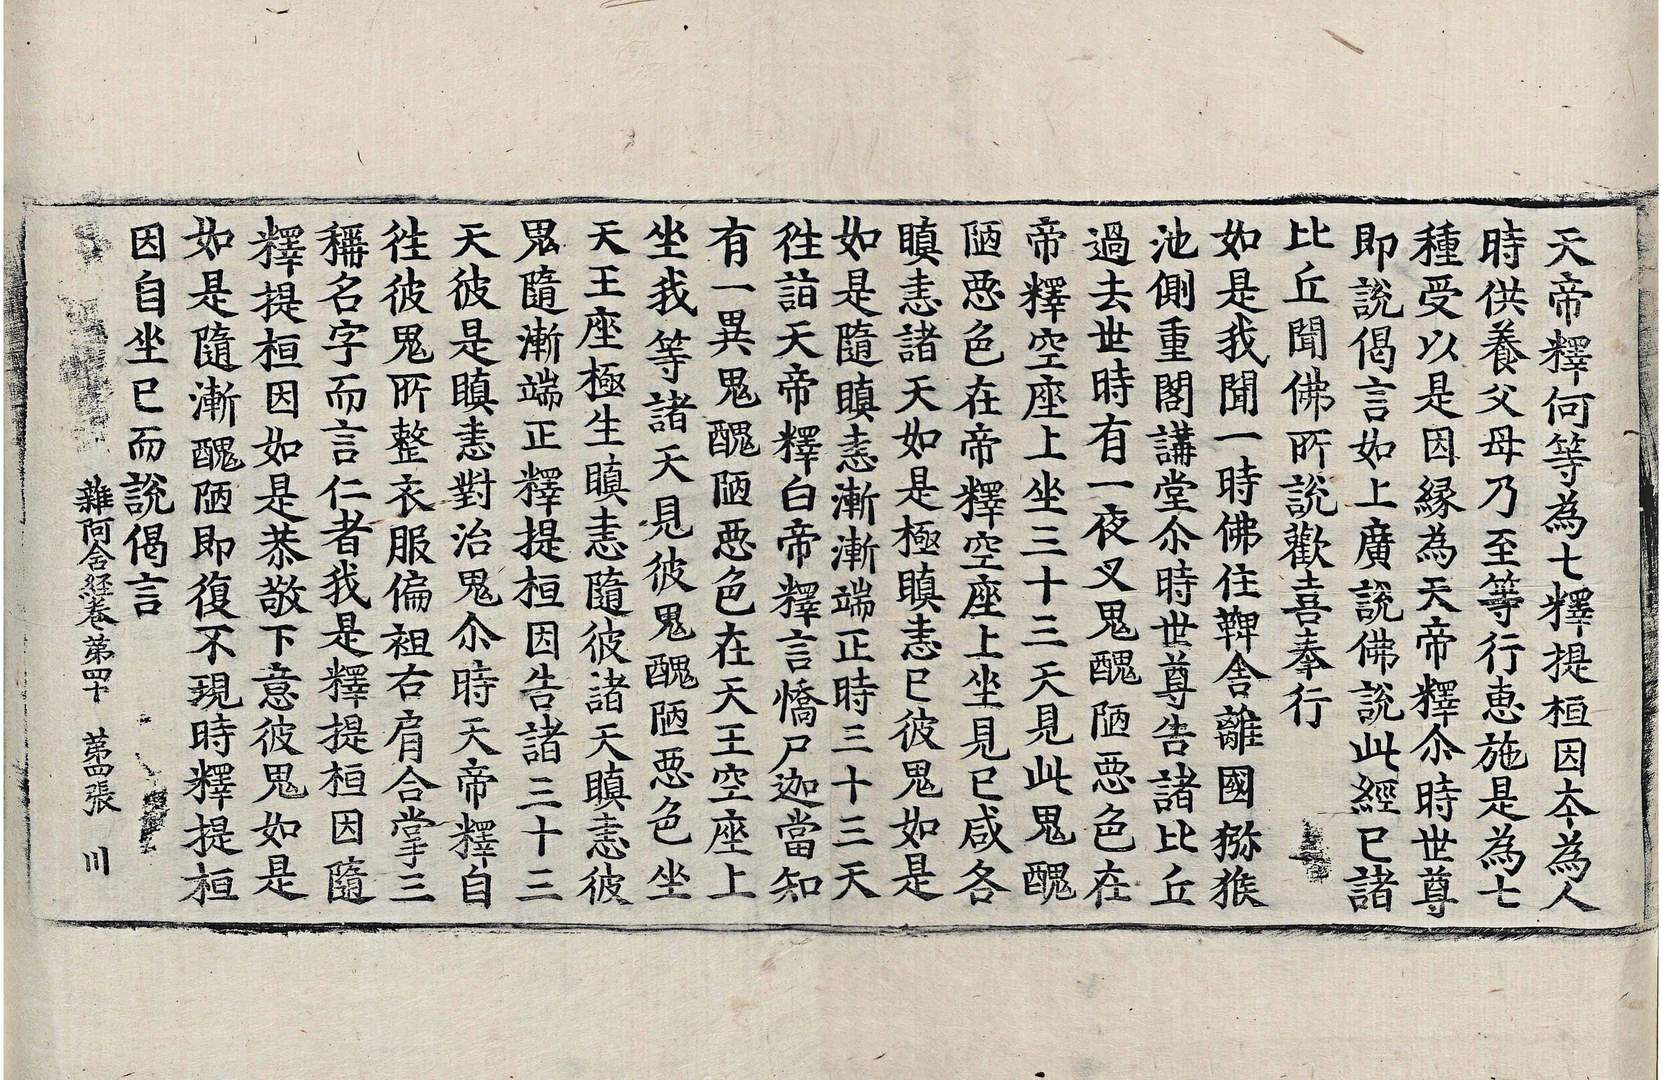 天帝釋何等為七釋提桓因夲為人
時供養父母乃至等行惠施是為七
種受以是因緣為天帝釋尒時世尊
即說偈言如上廣說佛說此經已諸
比丘聞佛所說歡喜奉行
如是我聞一時佛住鞞舍離國獼猴
池側重閣講堂尒時世尊告諸比丘
過去世時有一夜叉鬼醜陋惡色在
帝釋空座上坐三十三天見此鬼醜
陋惡色在帝釋空座上坐見已咸各
瞋恚諸天如是極瞋恚已彼鬼如是
如是隨瞋恚漸漸端正時三十三天
往詣天帝釋白帝釋言憍尸迦當知
有一異鬼醜陋惡色在天王空座上
坐我等諸天見彼鬼醜陋惡色坐
天王座極生瞋恚隨彼諸天瞋恚彼
鬼隨漸端正釋提桓因告諸三十三
天彼是瞋恚對治鬼尒時天帝釋自
往彼鬼所整衣服偏袒右肩合掌三
稱名字而言仁者我是釋提桓因隨
釋提桓因如是恭敬下意彼鬼如是
如是隨漸醜陋即復不現時釋提桓
因自坐已而說偈言
雜阿含経卷第四十 第四張 川